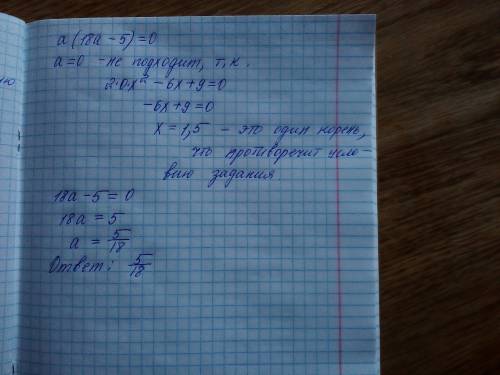 a(18a-5)=0
a=0 - не подходит, т.к.
2·0·x² - 6x+9=0
-6x+9=0
x=1,5 - это один корень,
что противоречит усло-
вию задания
18a-5=0
18a=5
a = 5/18
Ответ: 5/18